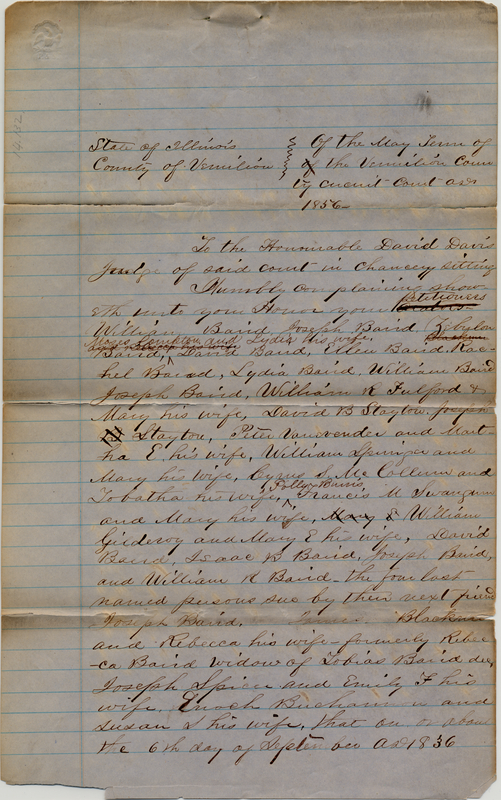 State of Illinois
County of Vermilion
Of the May Term of
of the Vermilion Coun
ty circuit Court AD
1856
To the Honourable David Davis
Judge of said court in chancery sitting
Humbly complaining show-
eth unto your Honor your petitioners
William Baird, Joseph Baird, Zebylon
and Lydia his wife,
Baird, David Baird, Ellen Baird Rac-
hel Baird, Lydia Baird, William Baird
Joseph Baird, William R Fulford &
Mary his wife, David B Stayton, Joseph
Stayton, Peter Vanvender and Mart-
ha E. his wife, William Springer and
Mary his wife, Cyrus S. McCollum and
Tobatha his wife, Polly Burns Francis M Swangum
and Mary his wife, Mary E William
Gilderoy and Mary E his wife, David
Baird, Isaac B Baird, Joseph Baird,
and William R Baird. the four last
named persons sue by their next friend
Joseph Baird. Blackman
and Rebecca his wife formerly Rebec
-ca Baird widow of Tobias Baird dec,
Joseph Spicer and Emily F his
wife, Enoch Buchanan and
Susan S his wife, that on or about
the 6th day of September AD 1836